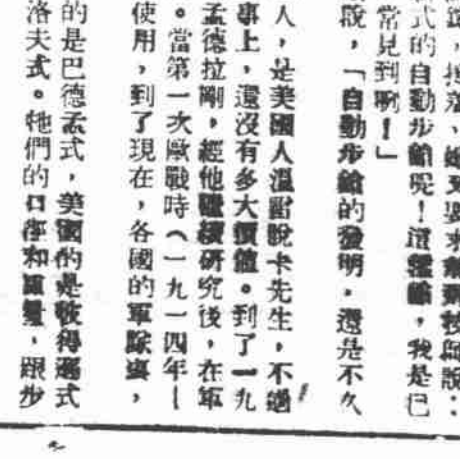 她又要求
式的自動步鎗呢！這種鎗，我是已
常見到啊！」
說，「自動步鎗的發明，還是不久
人，是美國人溫耐脫卡先生，不過
事上，還沒有多大價值。到了一九
孟德拉剛，經他繼續研究後，在軍
。當第一次歐戰時（一九一四年—
使用，到了現在，各國的軍隊裏，
的是巴德孟式，美國的是彼得遜式
洛夫式。牠們的口徑和重量，跟步